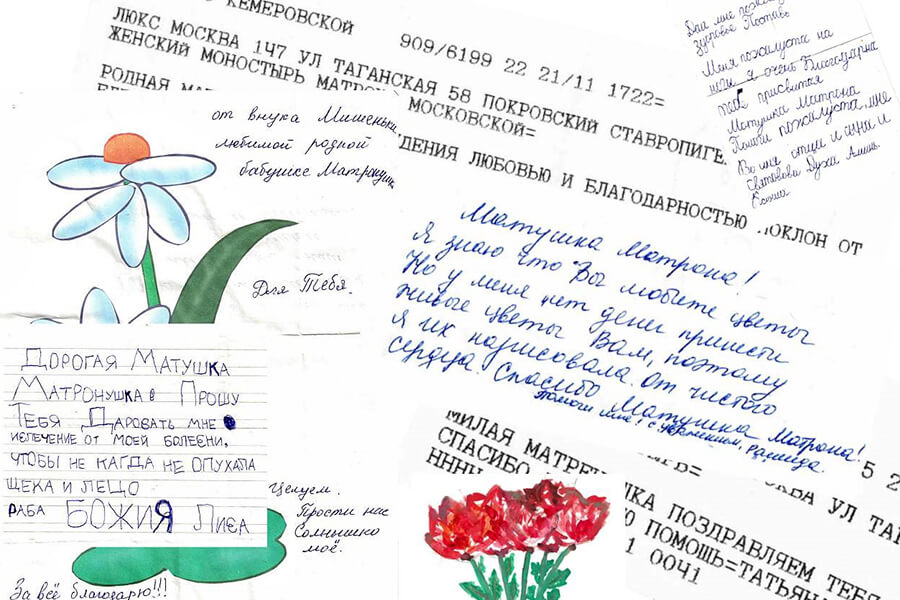 КЕМЕРОВСКОЙ
909/6199 22 21/11 1722=
ЛЮКС МОСКВА 147 УЛ ТАГАНСКАЯ 58 ПОКРОВСКИЙ СТАВРОПИГ
ЖЕНСКИЙ МОНОСТЫРЬ МАТРО
МОСКОВСКОЙ=
РОДНАЯ МА
ДЕНИЯ ЛЮБОВЬЮ И БЛАГОДАРНОСТЬЮ ПОКЛОН ОТ
Дай мне
здоровье
Меня пожалуста на
я очень благодарна
тебе присвитая
Матушка Матрона
Помоги пожалуста мне
Во имя отци и сына и
Святовова Духа Аминь.
от внука Мишеньки
любимой родной
бабушке Матронушк
Для Тебя.
Матушка Матрона!
Я знаю что Вы любите цветы
Но у меня нет дени принести
живые цветы Вам, поэтому
я их нарисовала от чистого
сердца. Спасибо Матушка Матрона!
Помоги мне! с уважением, Рашида.
Дорогая Матушка
Матронушка Прошу
Тебя Даровать мне
излечение от моей болезни,
чтобы не кагда не опухала
щека и лецо
раба БОЖИЯ Лиза
Целуем.
Прости нас
Солнышко
моё.
За всё благодарю!!!
МИЛАЯ МАТРЕ
СПАСИБО
НННН
5 2
ВА УЛ ТА
КА ПОЗДРАВЛЯЕМ ТЕБЯ
ПОМОЩЬ=ТАТЬЯН
1 0041